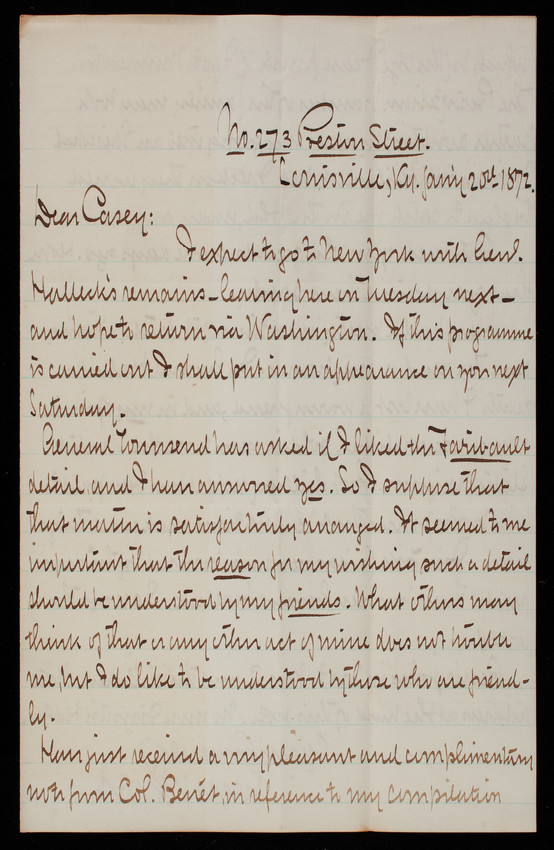 No. 273 Preston Street.
Louisville, Ky. Jan'y 20th 1872.
Dear Casey:
I expect to go to New York with Genl.
Halleck's remains – leaving here on Tuesday next –
and hope to return via Washington. If this programme
is carried out I shall put in an appearance on you next
Saturday.
General Townsend has asked if I liked the Faribault
detail, and I have answered yes. So I suppose that
that matter is satisfactorily arranged. It seemed to me
important that the reason for my wishing such a detail
should be understood by my friends. What others may
think of that or any other act of mine does not trouble
me, but I do like to be understood by those who are friend-
ly.
Have just received a very pleasant and complimentary
note from Col. Benét, in reference to my compilation